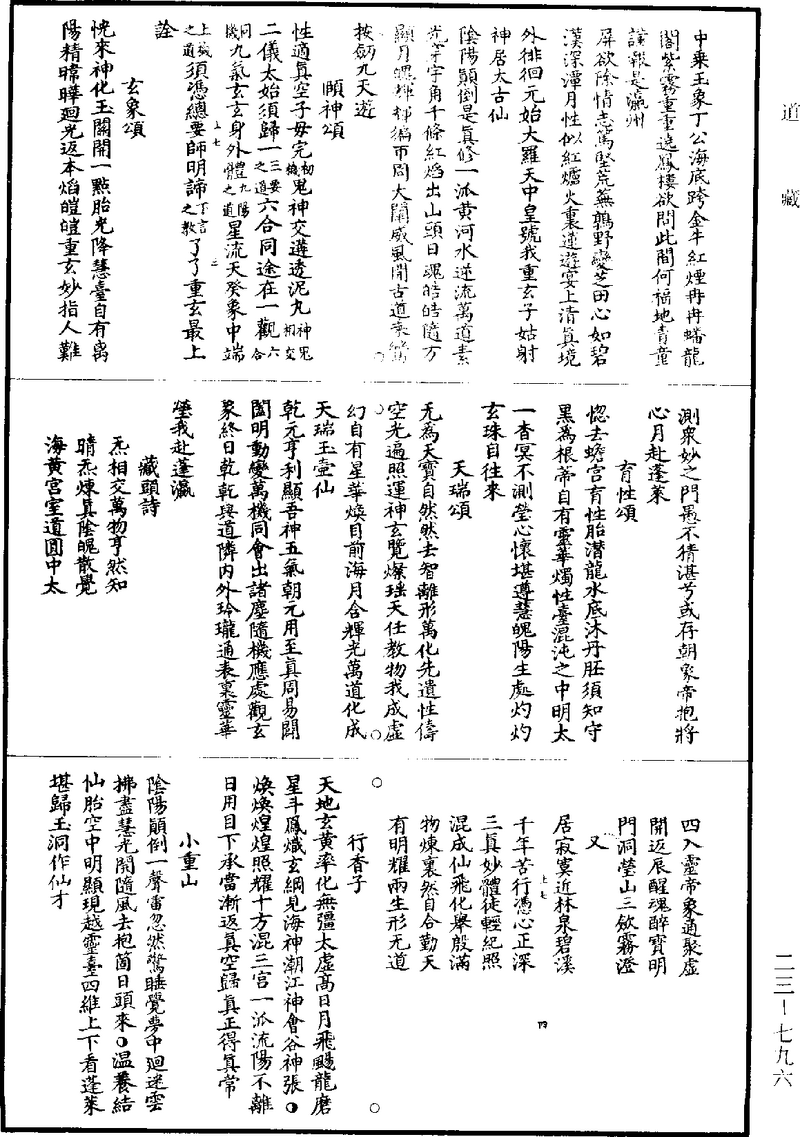 道藏
中乘玉象丁公海底跨金牛紅煙冉冉蟠龍
閣紫霧重重遶鳳樓欲問此間何福地青童
謹報是瀛州
屏欲除情志馬堅荒蕪鵝野變芝田心如碧
漢深潭月性似紅爐火裏蓮遊宴上清真境
外徘徊元始大羅天中皇號我重玄子姑射
神居太古仙
陰陽顛倒是真修一派黃河水逆流萬道素
光穿宇角千條紅焰出山頭日魂皓皓隨方
顯月魄輝輝徧帀周大闡威風開古道乘鸞
按劍九天遊
頤神頌
性適真空子母完初鬼神交遘透泥丸神鬼相交
二儀太始須歸一三要之道六合同途在一觀六合
同機九氣玄玄身外體九陽之道星流天癸象中端
上玆之道須憑總要師明諦下言之教了了重玄最上
詮
玄象頌
恍來神化玉關開一點胎光降慧臺自有离
陽精暐曄迴光返本焰皚皚重玄妙指人難
測衆妙之門愚不猜湛兮或存朝象帝抱將
心月赴蓬萊
育性頌
惚去蟾宮育性胎潛龍水底沐丹胚須知守
黑為根蒂自有靈華燭性臺混沌之中明太
一杳冥不測瑩心懷堪遵慧魄陽生處灼灼
玄珠自往來
天瑞頌
无為天寶自然然去智離形萬化先遺性儔
空光遍照運神玄覽燦瑤天任教物我成虛
幻自有星華煥目前海月含輝光萬道化成
天瑞玉壺仙
乾元亨利顯吾神五氣朝元用至真周易闢
闔明動變萬機同會出諸塵隨機應處觀玄
象終日乾乾與道隣內外玲瓏通表裏靈華
瑩我赴蓬瀛
藏頭詩
炁相交萬物亨然知
晴炁煉真陰魄散覺
海黃宮室道圓中太
四入靈帝象通聚虛
開返辰醒魂醉寶明
門洞瑩山三飲霧澄
又
居寂寞近林泉碧溪
千年苦行憑心正深
三真妙體徒輕紀照
混成仙飛化舉殷滿
物煉裏然自合勤天
有明耀兩生形无道
行香子
天地玄黃率化無彊太虛高日月飛颺龍磨
星斗鳳熾玄綱見海神潮江神會谷神張
煥煥煌煌照耀十方混三宮一派流陽不離
日用目下承當漸返真空歸真正得真常
小重山
陰陽顛倒一聲雷忽然驚睡覺夢中迴迷雲
拂盡慧光開隨風去抱箇日頭來溫養結
仙胎空中明顯現越靈臺四維上下看蓬萊
堪歸玉洞作仙才
二三－七九六